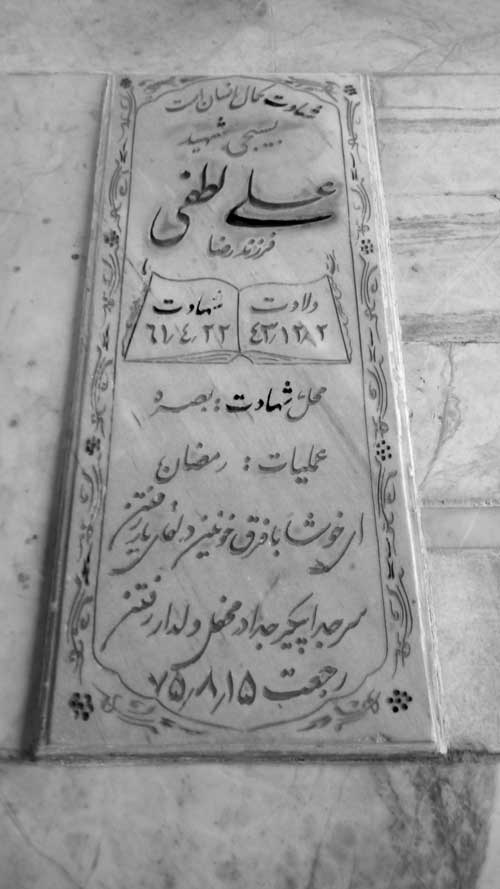 شهادت کمال انسان است
بسیجی شهید
علی لطفی
فرزند رضا
ولادت
۴۳٫۱۲٫۲
شهادت
۶۱٫۴٫۲۲
محل شهادت: بصره
عملیات: رمضان
ای خوشا با فرق خونین در لقای یار رفتن
سر جدا پیکر جدا در محفل دلدار رفتن
رجعت ۷۵٫۸٫۱۵